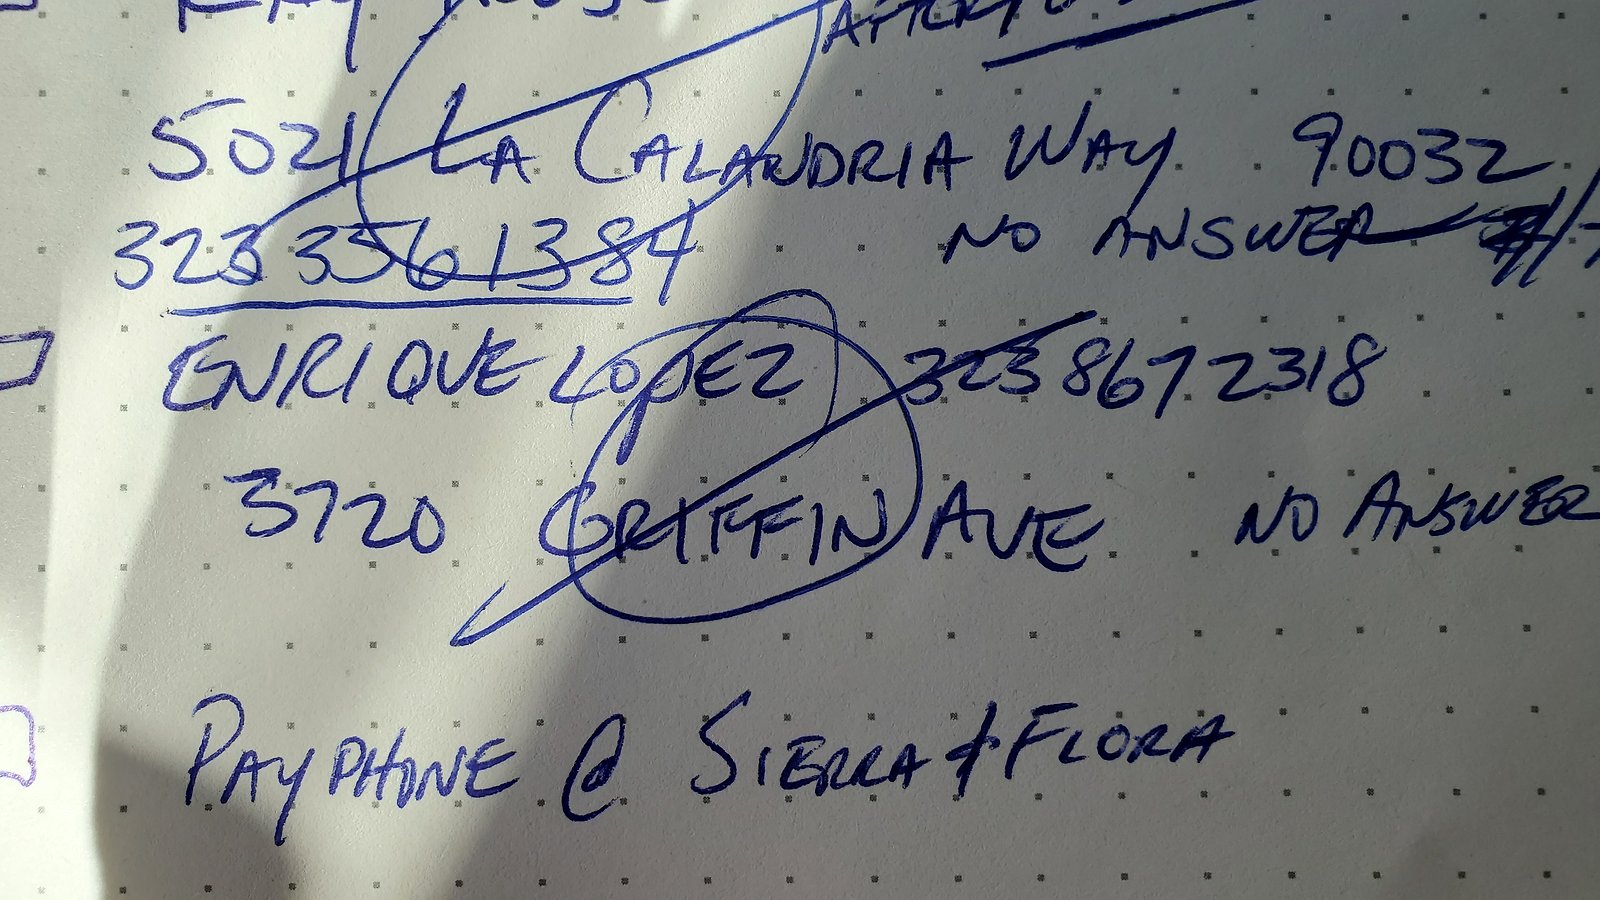 5021 LA CALANDRIA WAY 90032
323 356 1384 NO ANSWER
ENRIQUE LOPEZ 323 867 2318
3720 GRIFFIN AVE NO ANSWER
PAYPHONE @ SIERRA & FLORA